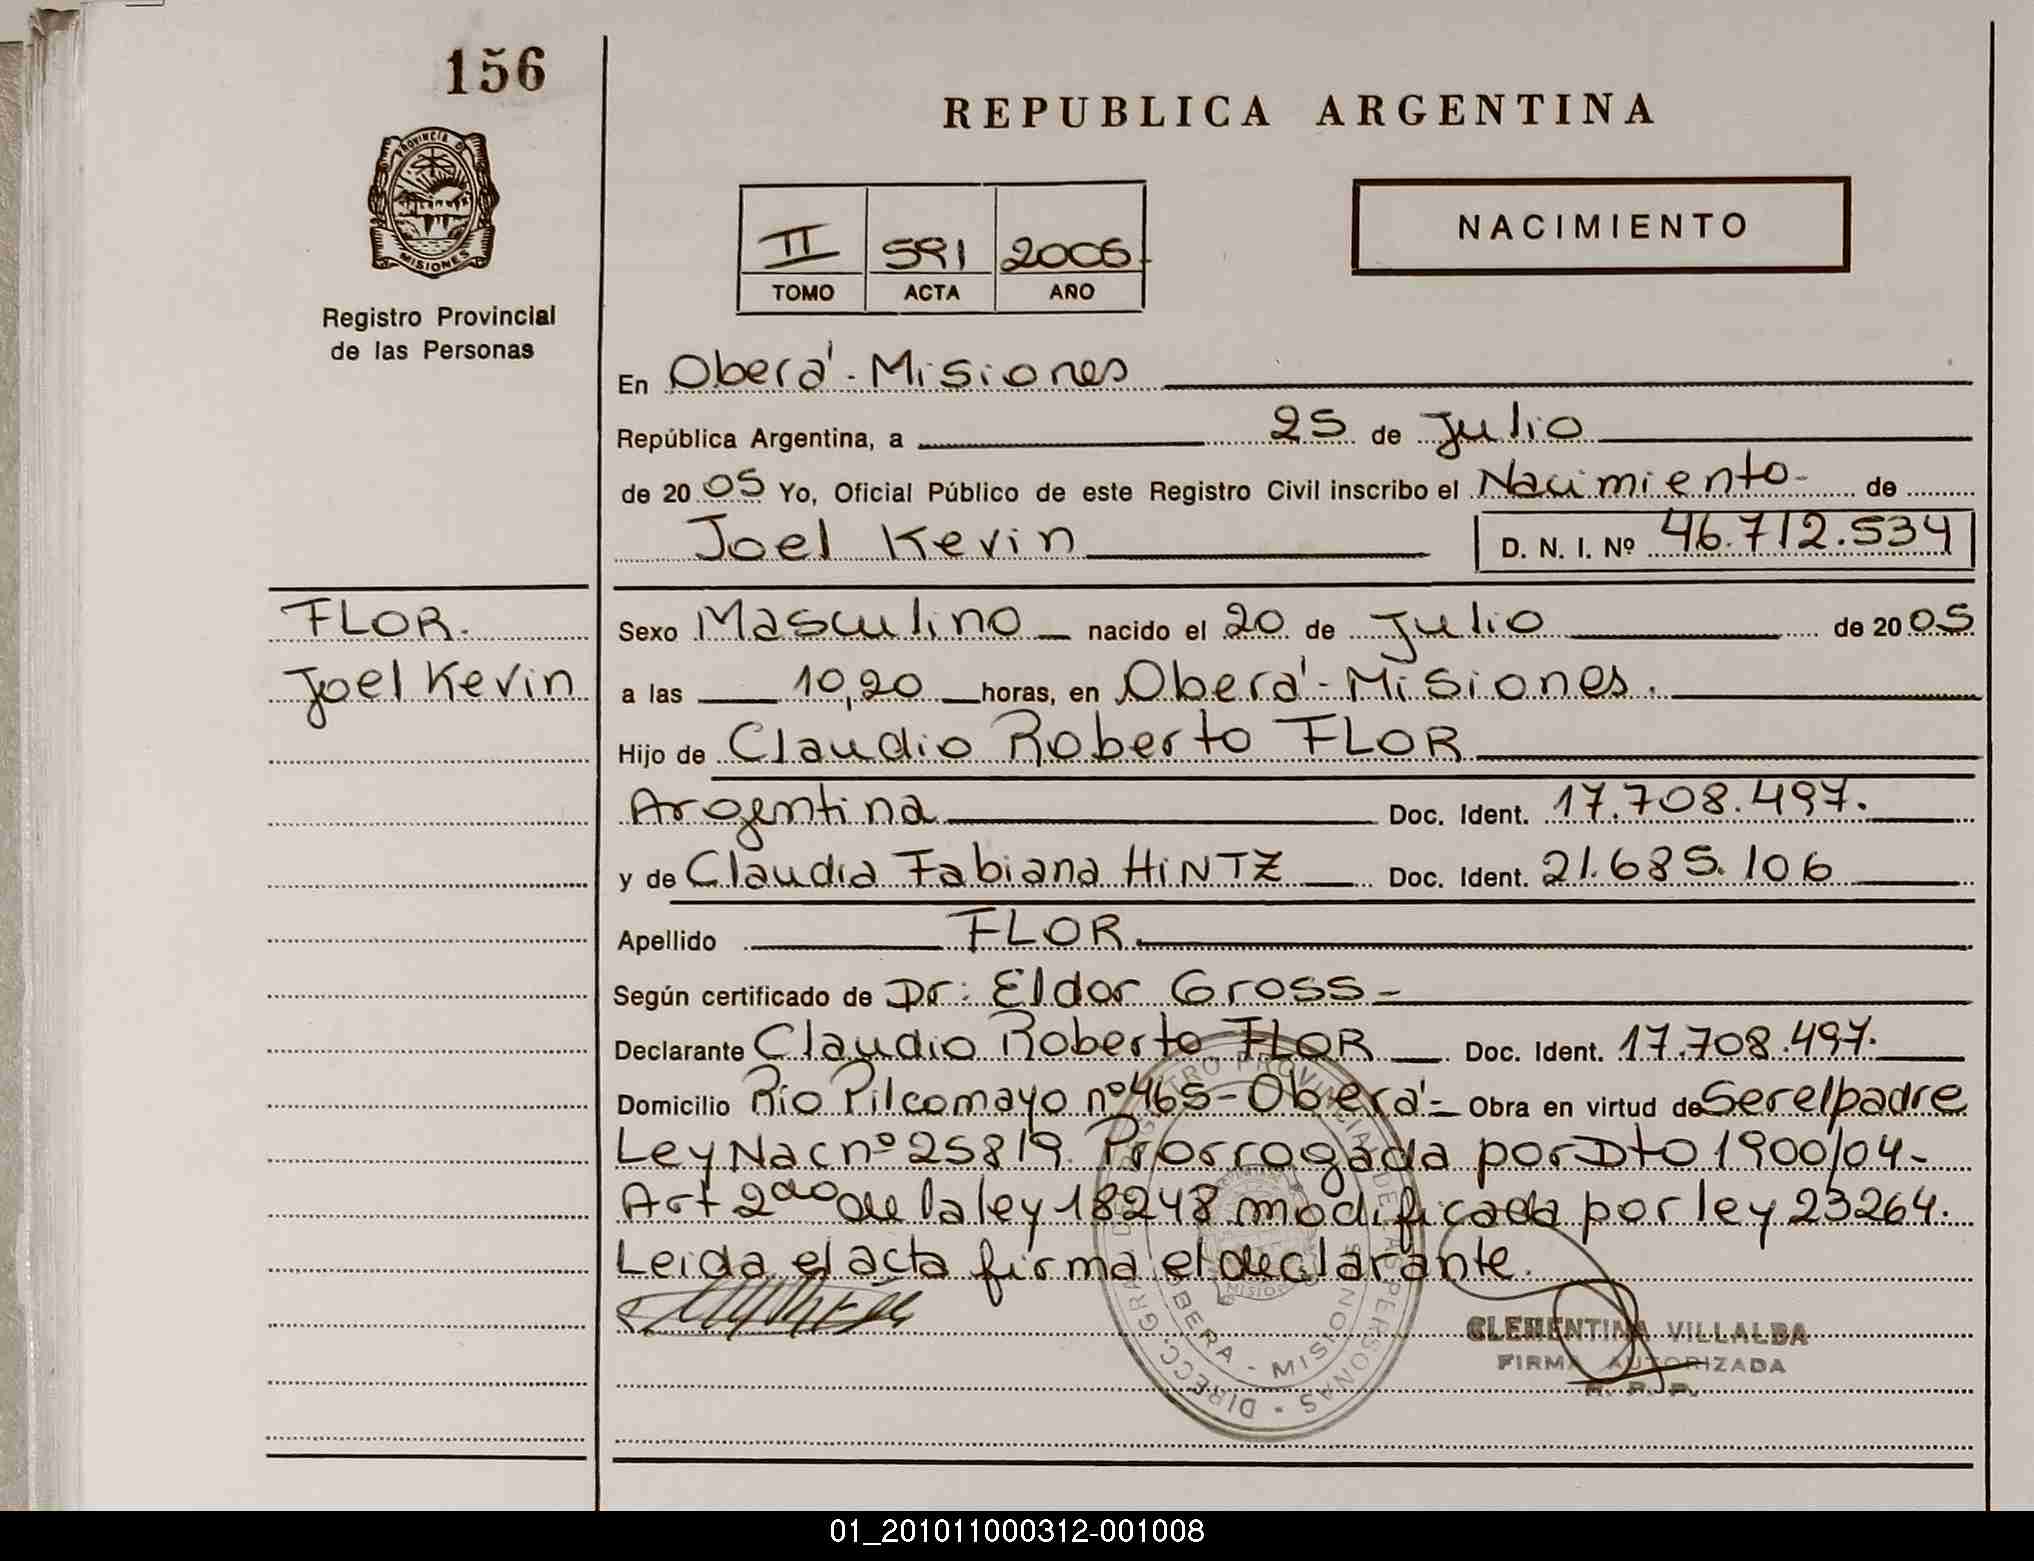 156
REPUBLICA ARGENTINA
PROVINCIA DE
MISIONES
Registro Provincial
de las Personas
II 591 2005
TOMO ACTA AÑO
NACIMIENTO
En Oberá - Misiones
República Argentina, a 25 de Julio
de 20 05 Yo, Oficial Público de este Registro Civil inscribo el Nacimiento - de
Joel Kevin D. N. I. Nº 46.712.534
FLOR.
Joel Kevin
Sexo Masculino nacido el 20 de Julio de 20 05
a las 10,20 horas, en Oberá - Misiones.
Hijo de Claudio Roberto FLOR
Argentina Doc. Ident. 17.708.497.
y de Claudia Fabiana HiNTZ Doc. Ident. 21.685.106
Apellido FLOR
Según certificado de Dr: Eldor Gross -
Declarante Claudio Roberto FLOR Doc. Ident. 17.708.497.
Domicilio Rio Pilcomayo nº 465 - Oberá - Obra en virtud de Ser el padre
Ley Nac nº 25819 Prorrogada por Dto 1900/04 -
Art 2do de la ley 18248 modificada por ley 23264.
Leida el acta firma el declarante.
CLEMENTINA VILLALBA
FIRMA AUTORIZADA
R. P. P.
01_201011000312-001008